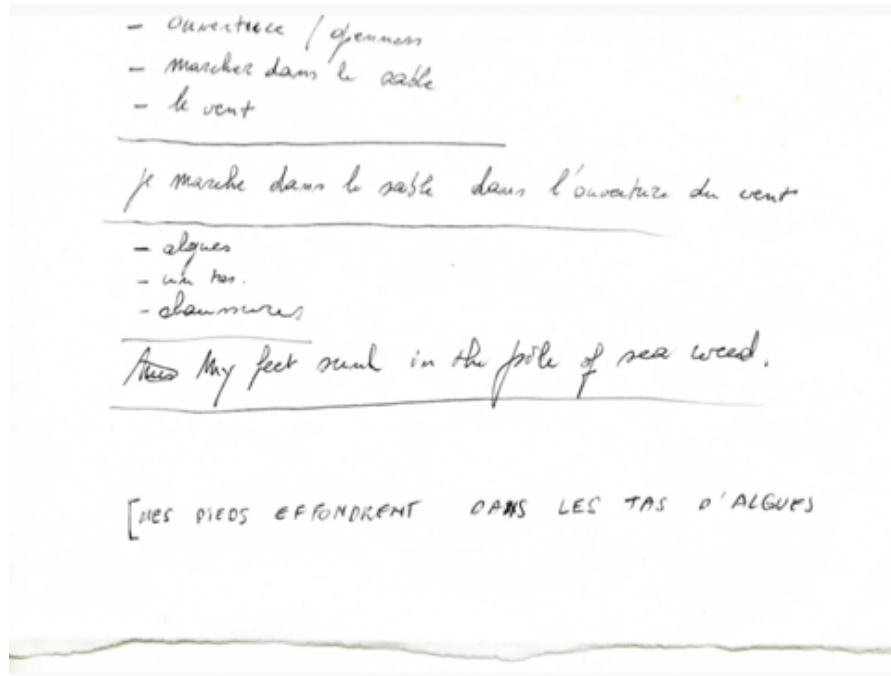 - ouverture / openness
- marcher dans le sable
- le vent
je marche dans le sable dans l'ouverture du vent
- algues
- un tas.
- chaussures
My feet sunk in the pile of sea weed.
[MES PIEDS EFFONDRENT DANS LES TAS D'ALGUES